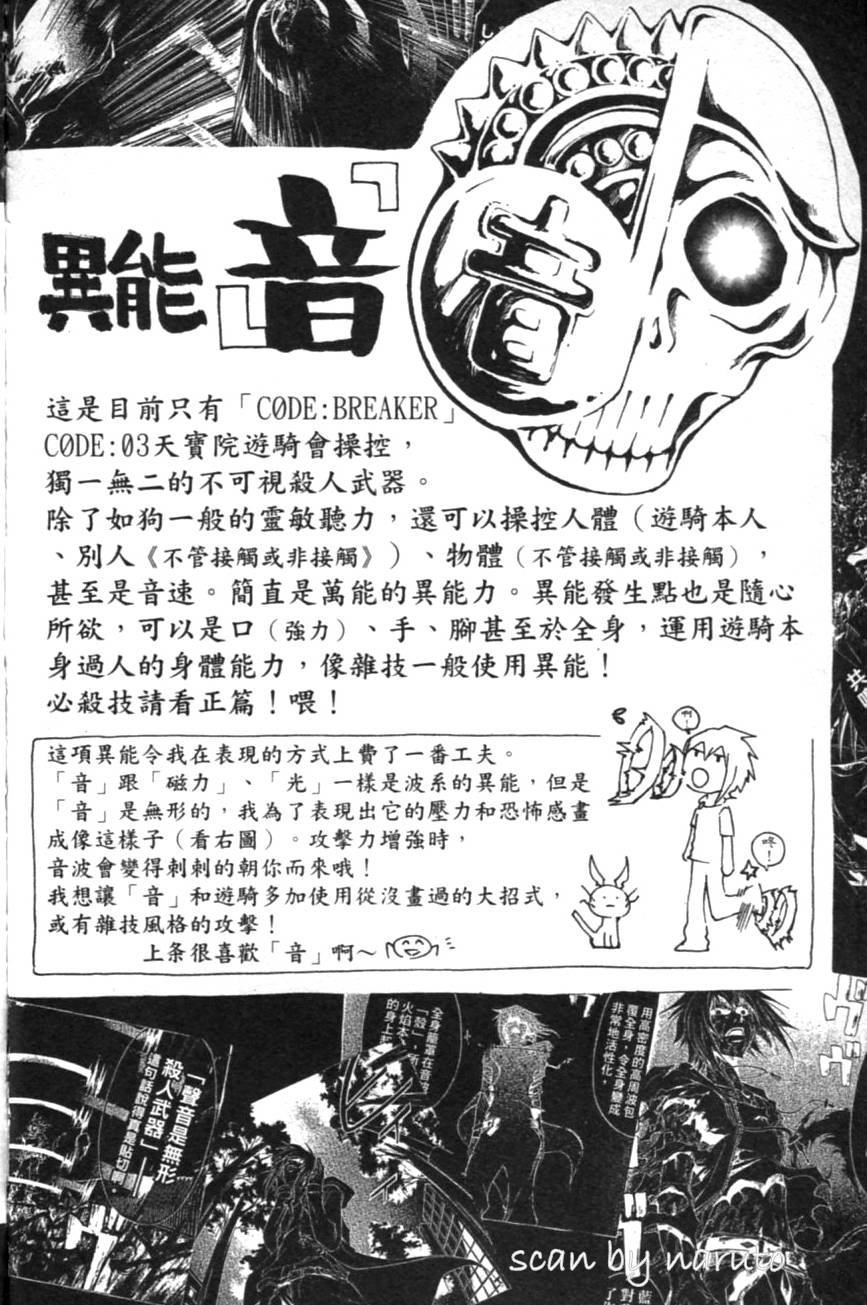 異能『音』
音
這是目前只有「CØDE:BREAKER」
CØDE:03天寶院遊騎會操控,
獨一無二的不可視殺人武器。
除了如狗一般的靈敏聽力,還可以操控人體(遊騎本人
、別人《不管接觸或非接觸》)、物體(不管接觸或非接觸),
甚至是音速。簡直是萬能的異能力。異能發生點也是隨心
所欲,可以是口(強力)、手、腳甚至於全身,運用遊騎本
身過人的身體能力,像雜技一般使用異能!
必殺技請看正篇!喂!
這項異能令我在表現的方式上費了一番工夫。
「音」跟「磁力」、「光」一樣是波系的異能,但是
「音」是無形的,我為了表現出它的壓力和恐怖感畫
成像這樣子(看右圖)。攻擊力增強時,
音波會變得刺刺的朝你而來哦!
我想讓「音」和遊騎多加使用從沒畫過的大招式,
或有雜技風格的攻擊!
上条很喜歡「音」啊～
啊!
咚!
用高密度的高周波包
覆全身,令全身變成
非常地活性化,
全身籠罩在音
「殼」
火焰
的身上
「聲音是無形
殺人武器」
這句話說得真是貼切啊
scan by naruto